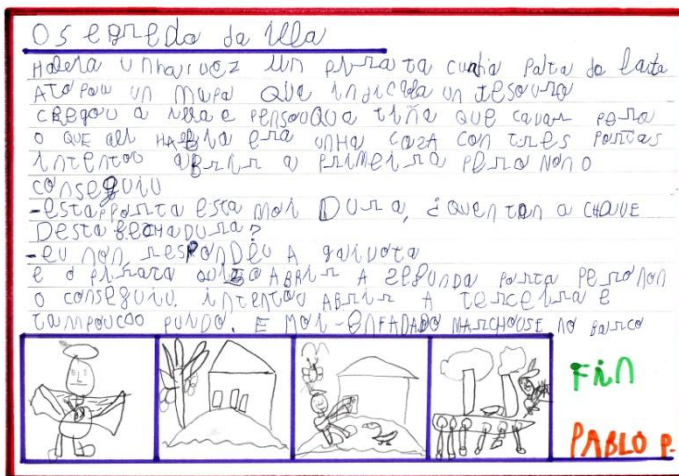 OS egredo da illa
Habera unha vez un pirata cunha pata de lata
Atopou un mapa que indicaba un tesouro
Chegou a illa e pensouqua tiña que cavar pero
o que all habia era unha caza con tres portas
intentou abrir a primeira pero non o
conseguiu
-esta pporta esta moi Dura, ¿quen ten a chauve
Desta fechadura?
-eu non respondeu a gaivota
e o pirata quiso abrir a segunda porta pero non
o conseguiu. intentou abrir a terceira e
tampoucoo puido. E moi-enfadado marchouse no barco
Fin
PABLO P.